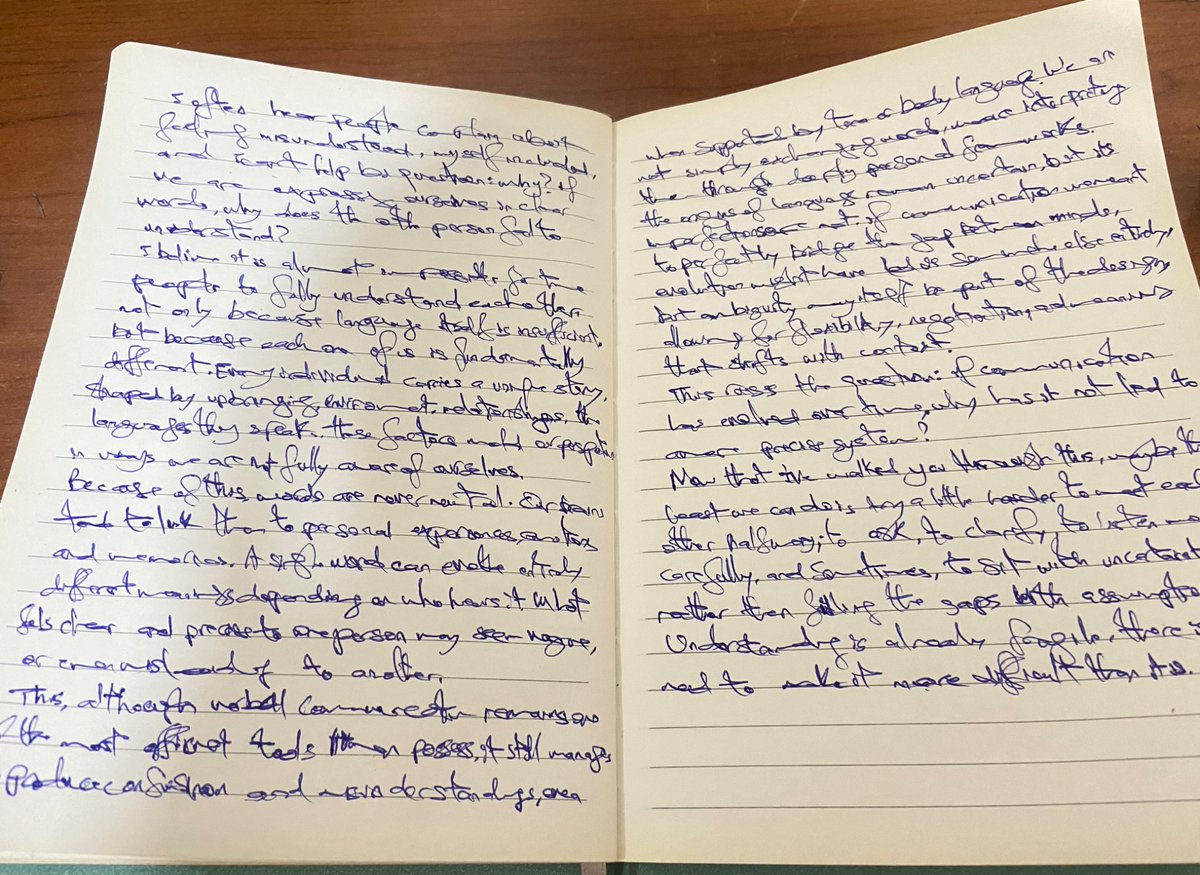 I often hear people complain about
feeling misunderstood, myself included,
and I can't help but question: why? If
we are expressing ourselves in clear
words, why does the other person fail to
understand?
I believe it is almost impossible for two
people to fully understand each other
not only because language itself is insufficient,
but because each one of us is fundamentally
different. Every individual carries a unique story,
shaped by upbringing, environment, relationships, the
languages they speak. These factors mold our perspective
in ways we are not fully aware of ourselves.
Because of this, words are never neutral. Our brains
tend to link them to personal experiences, emotions
and memories. A single word can evoke entirely
different meanings depending on who hears it. What
feels clear and precise to one person may seem vague,
or even misleading to another.
Thus, although verbal communication remains one
of the most efficient tools humans possess, it still manages
produce confusion and misunderstandings, even
when supported by tone or body language. We are
not simply exchanging words, we are interpreting
them through deeply personal frameworks.
The origins of language remain uncertain, but its
imperfections are not. If communication were meant
to perfectly bridge the gap between minds,
evolution might have led us somewhere else entirely,
but ambiguity may itself be part of the design,
allowing for flexibility, negotiation, and meaning
that shifts with context.
This raises the question: if communication
has evolved over time, why has it not lead to
a more precise system?
Now that I've walked you through this, maybe the
least we can do is try a little harder to meet each
other halfway, to ask, to clarify, to listen more
carefully, and sometimes, to sit with uncertainty
rather than filling the gaps with assumptions
Understanding is already fragile, there is
need to make it more difficult than it is.